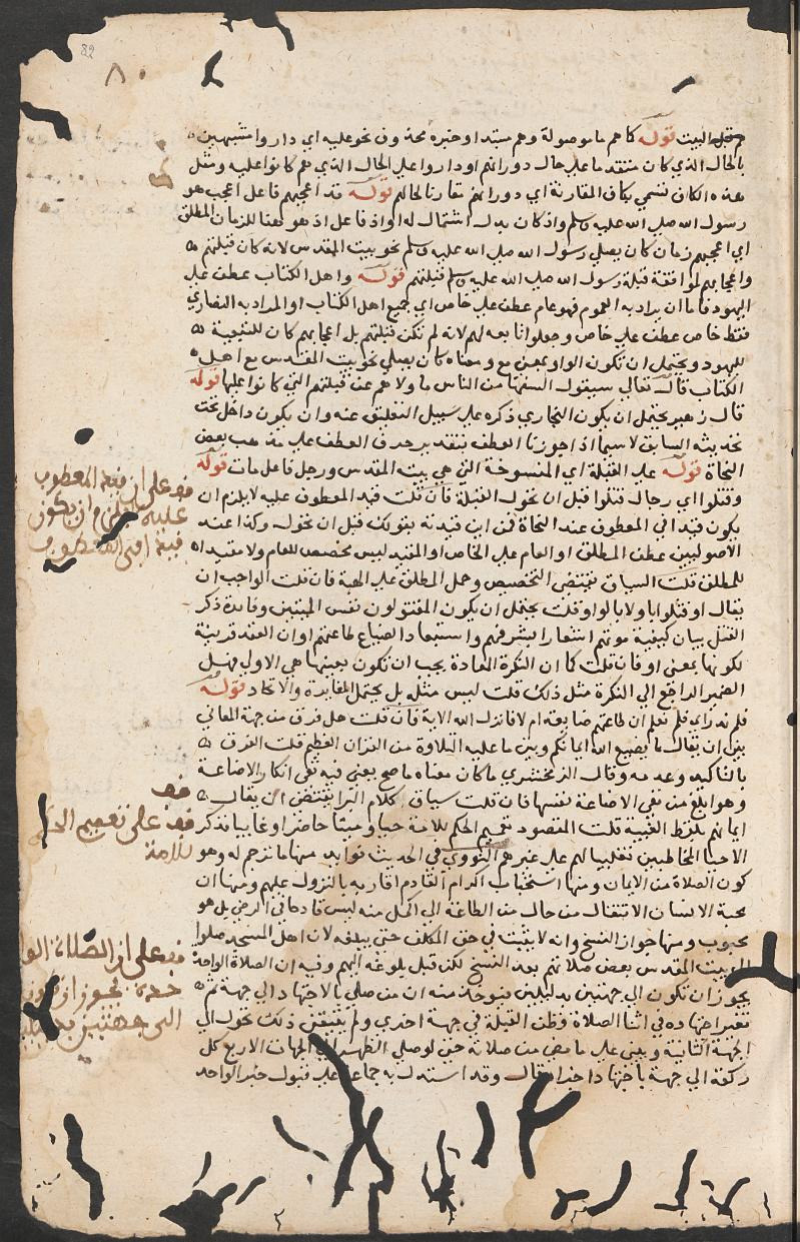 82
٨٠
قبل البيت قوله كما هم ما موصولة وهم مبتدا وخبره محذوف نحو عليه اي داروا مشبهين
بالحال الذي كان متقدما علي حال دورانهم او داروا علي الحال الذي هم كانوا عليه ومثل
هذه الكاف تسمي بكاف المقارنة اي دورانهم مقارنا لحالهم قوله قد اعجبهم فاعل اعجب هو
رسول الله صلي الله عليه وسلم واذ كان بدل اشتمال له او اذ فاعل اذ هو هنا للزمان المطلق
اي اعجبهم زمان كان يصلي رسول الله صلي الله عليه وسلم نحو بيت المقدس لانه كان قبلتهم
واعجابهم لموافقة قبلة رسول الله صلي الله عليه وسلم قبلتهم قوله واهل الكتاب عطف علي
اليهود فاما ان يراد به العموم فهو عام عطف علي خاص اي جميع اهل الكتاب او المراد به النصاري
فقط خاص عطف علي خاص وجعلوا تابعه لهم لانه لم تكن قبلتهم بل اعجابهم كان للتبعية
لليهود ويحتمل ان تكون الواو بمعني مع ومعناه كان يصلي نحو بيت المقدس مع اهل
الكتاب قال تعالي سيقول السفها من الناس ما ولاهم عن قبلتهم التي كانوا عليها قوله
قال زهير يحتمل ان يكون البخاري ذكره علي سبيل التعليق عنه وان يكون داخل تحت
حديثه السابق لا سيما اذا جوزنا العطف بتقدير حرف العطف علي مذهب بعض
النحاة قوله علي القبلة اي المنسوخة التي هي بيت المقدس ورجال فاعل مات قوله
وقتلوا اي رجال قتلوا قبل ان تحول القبلة فان قلت قيد المعطوف عليه لا يلزم ان
يكون قيدا في المعطوف عند النحاة فمن اين قيدته بقولك قبل ان تحول وكذا عند
الاصوليين عطف المطلق او العام علي الخاص او المقيد ليس بمخصص للعام ولا مقيدا
للمطلق قلت السياق يقتضي التخصيص وحمل المطلق علي المقيد فان قلت الواجب ان
يقال او قتلوا باو لا بالواو قلت يحتمل ان يكون المقتولون نفس الميتين وفائدة ذكر
القتل بيان كيفية موتهم اشعارا بشرفهم واستبعادا لضياع طاعتهم او ان العقد قرينة
لكونها بمعني او فان قلت كما ان النكرة المعادة يجب ان تكون بعينها هي الاولي فهل
الضمير الراجع الي النكرة مثل ذلك قلت ليس مثله بل يحتمل المغايرة والاتحاد قوله
فلم ندر اي فلم نعلم ان طاعتهم ضايعة ام لا فانزل الله الاية فان قلت هل فرق من جهة المعاني
بين ان يقال ما يضيع الله ايمانكم وبين ما عليه التلاوة من القران العظيم قلت الفرق
بالتاكيد وعدمه وقال الزمخشري ما كان معناه ما صح يعني فيه نفي انكار الاضاعة
وهو ابلغ من نفي الاضاعة نفسها فان قلت سياق كلام البرا يقتضي ان يقال
ايمانهم بلفظ الغيبة قلت المقصود تعميم الحكم للامة حيا وميتا حاضرا وغايبا فذكر
الاحيا المخاطبين تغليبا لهم علي غيرهم النووي في الحديث فوايد منها ما ترجم له وهو
كون الصلاة من الايمان ومنها استحباب اكرام القادم اقاربه بالنزول عليهم ومنها ان
محبة الانسان الانتقال من حال من الطاعة الي اكمل منه ليس قادحا في الرضي بل هو
محبوب ومنها جواز النسخ وانه لا يثبت في حق المكلف حتي يبلغه لان اهل المسجد صلوا
الي بيت المقدس بعض صلاتهم بعد النسخ لكن قبل بلوغه اليهم وفيه ان الصلاة الواحدة
يجوز ان تكون الي جهتين بدليلين فيوخذ منه ان من صلي بالاجتهاد الي جهة ثم
تغير اجتهاده في اثنا الصلاة وظن القبلة في جهة اخري ولم يتيقن ذلك تحول الي
الجهة الثانية ويبني علي ما مضي من صلاته حتي لو صلي الظهر الي الجهات الاربع كل
ركعة الي جهة باجتهاد اجزا وقال وقد استدل به جماعة علي قبول خبر الواحد
قف علي ان قيد المعطوف
عليه لا يلزم ان يكون
قيدا في المعطوف
قف
قف علي تعميم الحكم
للامة
قف علي ان الصلاة الوا
حدة يجوز ان تكون
الي جهتين بدليلين